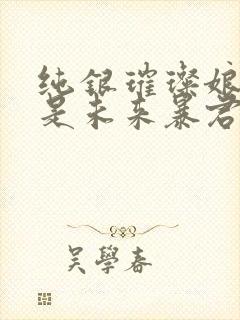 纯银璀璨娘
是未来暴君
吴学春